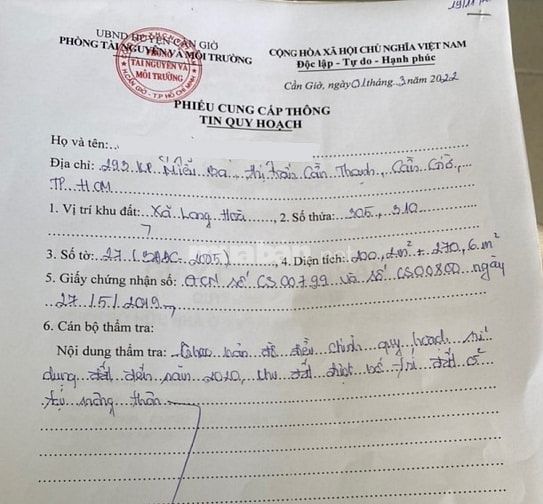 19/11
UBND HUYỆN CẦN GIỜ
PHÒNG TÀI NGUYÊN VÀ MÔI TRƯỜNG
CỘNG HÒA XÃ HỘI CHỦ NGHĨA VIỆT NAM
Độc lập - Tự do - Hạnh phúc
TÀI NGUYÊN VÀ
MÔI TRƯỜNG
H.CẦN GIỜ - T.P HỒ CHÍ MINH
Cần Giờ, ngày 01 tháng 3 năm 2022
PHIẾU CUNG CẤP THÔNG
TIN QUY HOẠCH
Họ và tên:
Địa chỉ: 293 KP Miễu Ba, thị trấn Cần Thạnh, Cần Giờ,
TP. HCM
1. Vị trí khu đất: Xã Long Hoà, 2. Số thửa: 305, 310
3. Số tờ: 27 ( 2005), 4. Diện tích: 200,2m² + 270,6m²
5. Giấy chứng nhận số: GCN số CS00799 và số CS00800 ngày
27/5/2019
6. Cán bộ thẩm tra:
Nội dung thẩm tra: Theo bản đồ điều chỉnh quy hoạch sử
dụng đất đến năm 2020, khu đất được bố trí đất ở